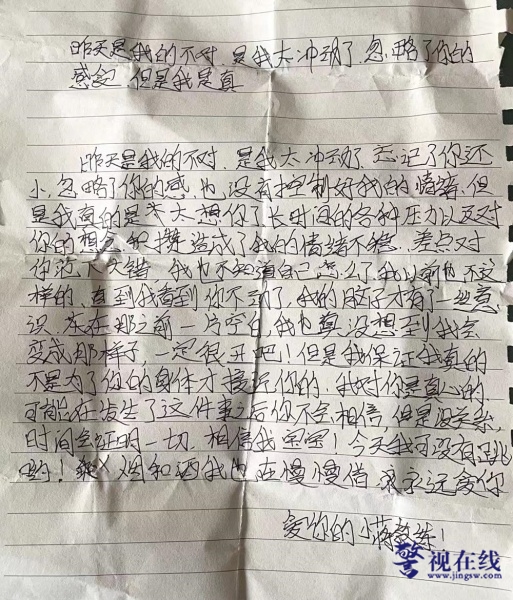 昨天是我的不对,是我太冲动了,忽略了你的
感 但是我是真
昨天是我的不对,是我太冲动了,忘记了你还
小,忽略了你的感 也没有控制好我的情绪,但
是我真的是 太想你了长时间的各种压力以及对
你的想 积攒造成了我的情绪不稳,差点对
你犯 大错 我也不知道自己怎么了,我以前也不这
样的,直到我看到你不 了,我的脑子才有了一丝意
识,在在那之前一片空白,我也真没想到我会
变成那样子,一定很 吧!但是我保证我真的
不是为了你的身体才接近你的,我对你是真心的,
可能在发生了这件事之后你不会相信,但是没关系,
时间会证明一切,相信我宝宝!今天我可没有
哟! 烟和酒我也在慢慢 永远爱你
爱你的小蒋教练!
警视在线
www.jingsw.com